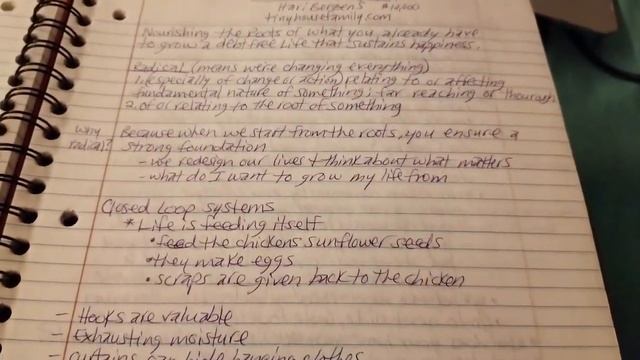 Hari Berzens $10,000
tinyhousefamily.com
Nourishing the roots of what you already have
to grow a debt free life that sustains happiness.
Radical (means we're changing everything)
1. (especially of change or action) relating to or affecting
fundamental nature of something; far reaching or thorough
2. of or relating to the root of something
Why radical? Because when we start from the roots, you ensure a
strong foundation
- we redesign our lives + think about what matters
- what do I want to grow my life from
Closed Loop Systems
* Life is feeding itself
• feed the chickens sunflower seeds
• they make eggs
• scraps are given back to the chicken
- Hooks are valuable
- Exhausting moisture
- curtains can hide hanging clothes